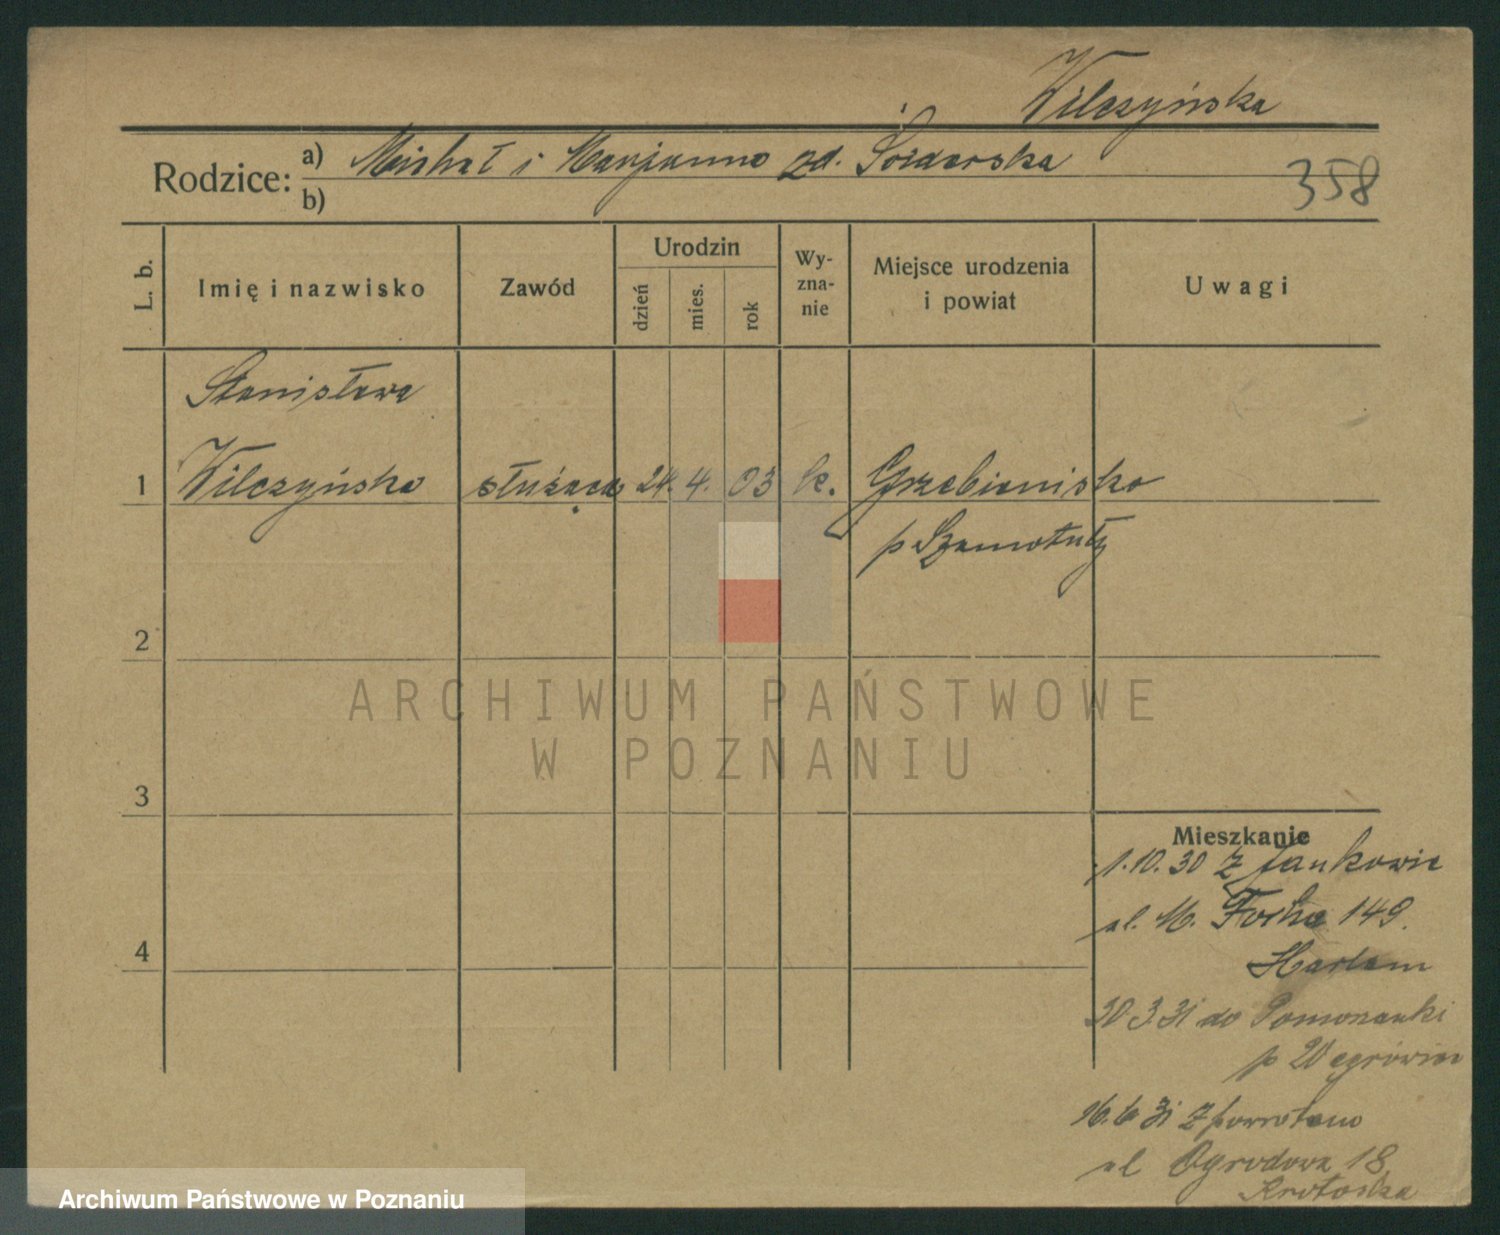 Wilczyńska
Rodzice: a) Michał i Marjanna zd.
b)
358
L. b.
Imię i nazwisko
Zawód
Urodzin
dzień
mies.
rok
Wy-
zna-
nie
Miejsce urodzenia
i powiat
Uwagi
Stanisława
1 Wilczyńska służąca 24. 4. 03 k. Grzebienisko
p Szamotuły
2
ARCHIWUM PAŃSTWOWE
W POZNANIU
3
Mieszkanie
1.10.30 z Jankowic
ul. M. Focha 149.
4
Harlam
30 3 31 do Pomorzanki
p Wągrówiec
16.6 31 z powrotem
ul Ogrodowa 18
Krotoska
Archiwum Państwowe w Poznaniu